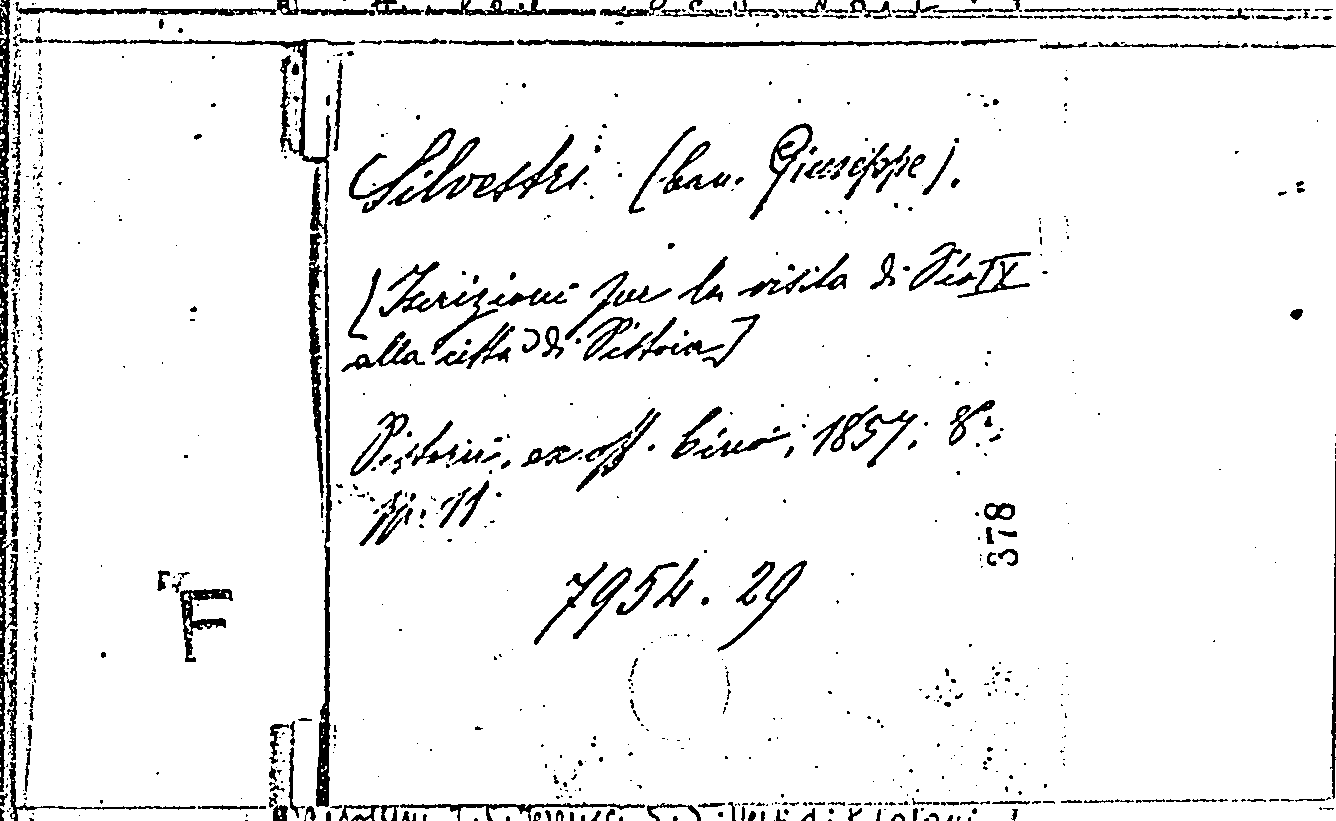 Silvestri (Can. Giuseppe).
[Iscrizioni per la visita di Pio IX
alla città di Pistoia]
Pistorii, ex off. Cino, 1857; 8°.
pp. 11
7954.29
378
F